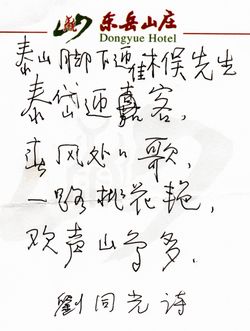 东岳山庄
Dongyue Hotel
泰山脚下迎桂林俣先生
泰岱迎嘉客，
春风处处歌，
一路桃花艳，
欢声山乌多．
劉同光诗